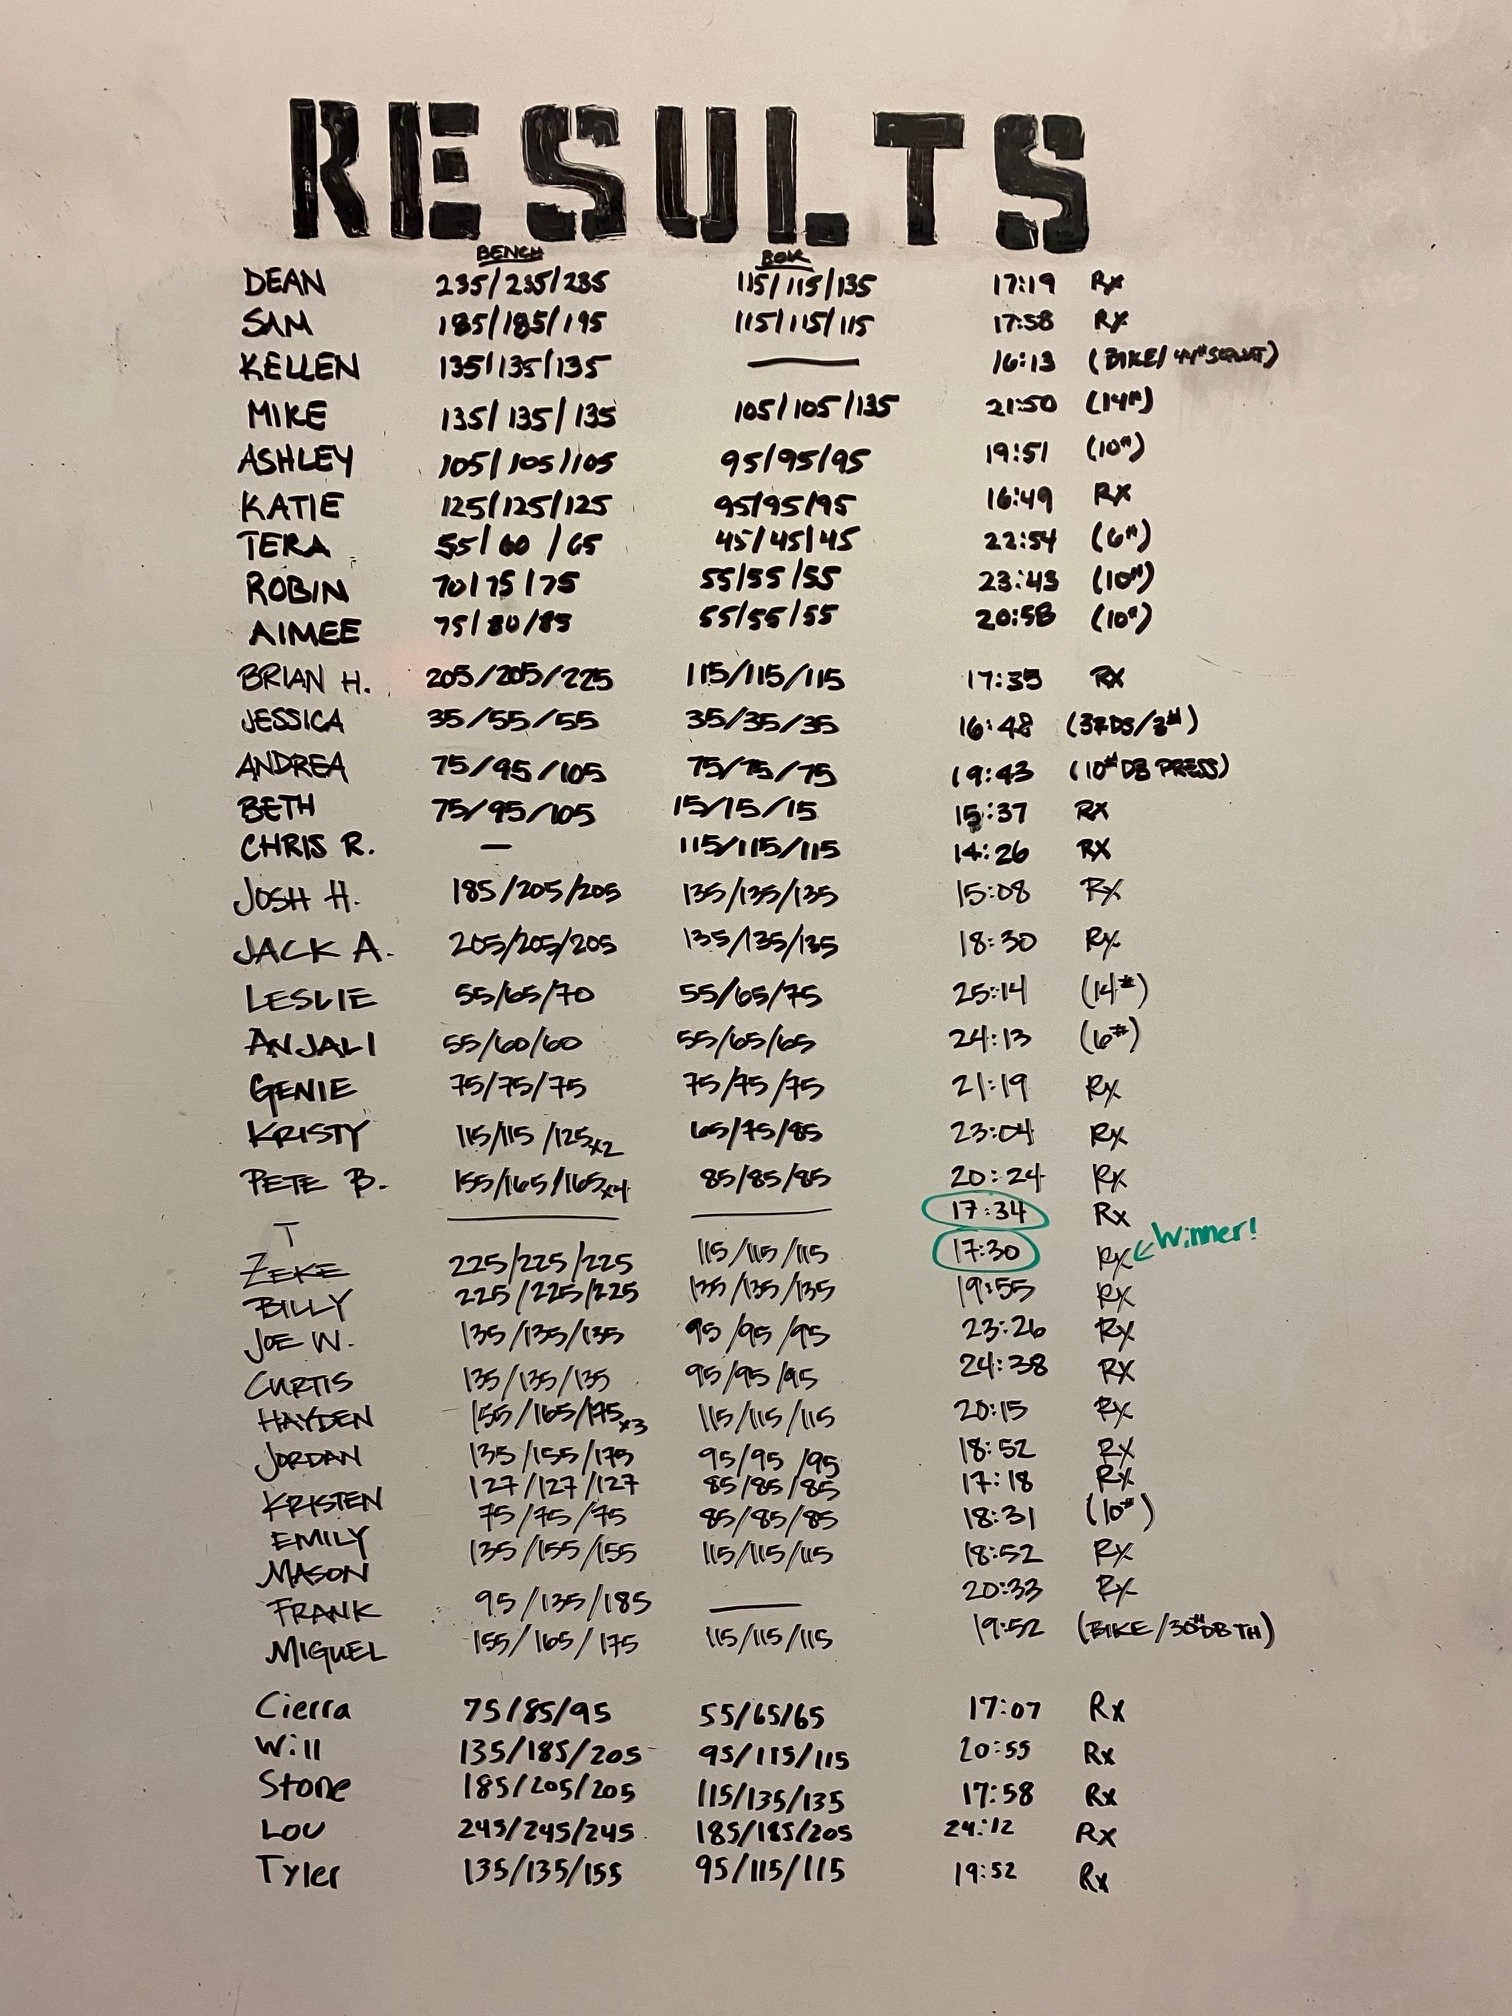 RESULTS
BENCH BOR
DEAN 235/235/235 115/115/135 17:19 Rx
SAM 185/185/195 115/115/115 17:58 Rx
KELLEN 135/135/135 — 16:13 (BIKE/44# SQUAT)
MIKE 135/135/135 105/105/135 21:50 (14#)
ASHLEY 105/105/105 95/95/95 19:51 (10#)
KATIE 125/125/125 95/95/95 16:49 RX
TERA 55/60/65 45/45/45 22:54 (6#)
ROBIN 70/75/75 55/55/55 23:43 (10#)
AIMEE 75/80/85 55/55/55 20:58 (10#)
BRIAN H. 205/205/225 115/115/115 17:35 RX
JESSICA 35/55/55 35/35/35 16:48 (3RDS/8#)
ANDREA 75/95/105 75/75/75 19:43 (10# DB PRESS)
BETH 75/95/105 15/15/15 15:37 RX
CHRIS R. — 115/115/115 14:26 RX
JOSH H. 185/205/205 135/135/135 15:08 Rx
JACK A. 205/205/205 135/135/135 18:30 Rx
LESLIE 55/65/70 55/65/75 25:14 (14#)
ANJALI 55/60/60 55/65/65 24:13 (6#)
GENIE 75/75/75 75/75/75 21:19 Rx
KRISTY 115/115/125x2 65/75/85 23:04 Rx
PETE B. 155/165/165x4 85/85/85 20:24 Rx
T — — 17:34 Rx
ZEKE 225/225/225 115/115/115 17:30 Rx ← Winner!
BILLY 225/225/225 135/135/135 19:55 Rx
JOE W. 135/135/135 95/95/95 23:26 Rx
CURTIS 135/135/135 95/95/95 24:38 RX
HAYDEN 155/165/175x3 115/115/115 20:15 Rx
JORDAN 135/155/175 95/95/95 18:52 RX
KRISTEN 127/127/127 85/85/85 17:18 Rx
EMILY 75/75/75 85/85/85 18:31 (10#)
MASON 135/155/155 115/115/115 18:52 Rx
FRANK 95/135/185 — 20:33 Rx
MIGUEL 155/165/175 115/115/115 19:52 (BIKE/30# DB TH)
Cierra 75/85/95 55/65/65 17:07 Rx
Will 135/185/205 95/115/115 20:55 Rx
Stone 185/205/205 115/135/135 17:58 Rx
LOU 245/245/245 185/185/205 24:12 Rx
Tyler 135/135/155 95/115/115 19:52 Rx